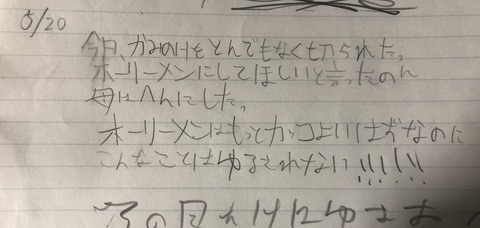 5/20
今日、かみのけをとんでもなく切られた。
ホーリーメンにしてほしいと言ったのに
母はへんにした。
ホーリーメンはもっとカッコよいはずなのに
こんなことはゆるされない!!!!!